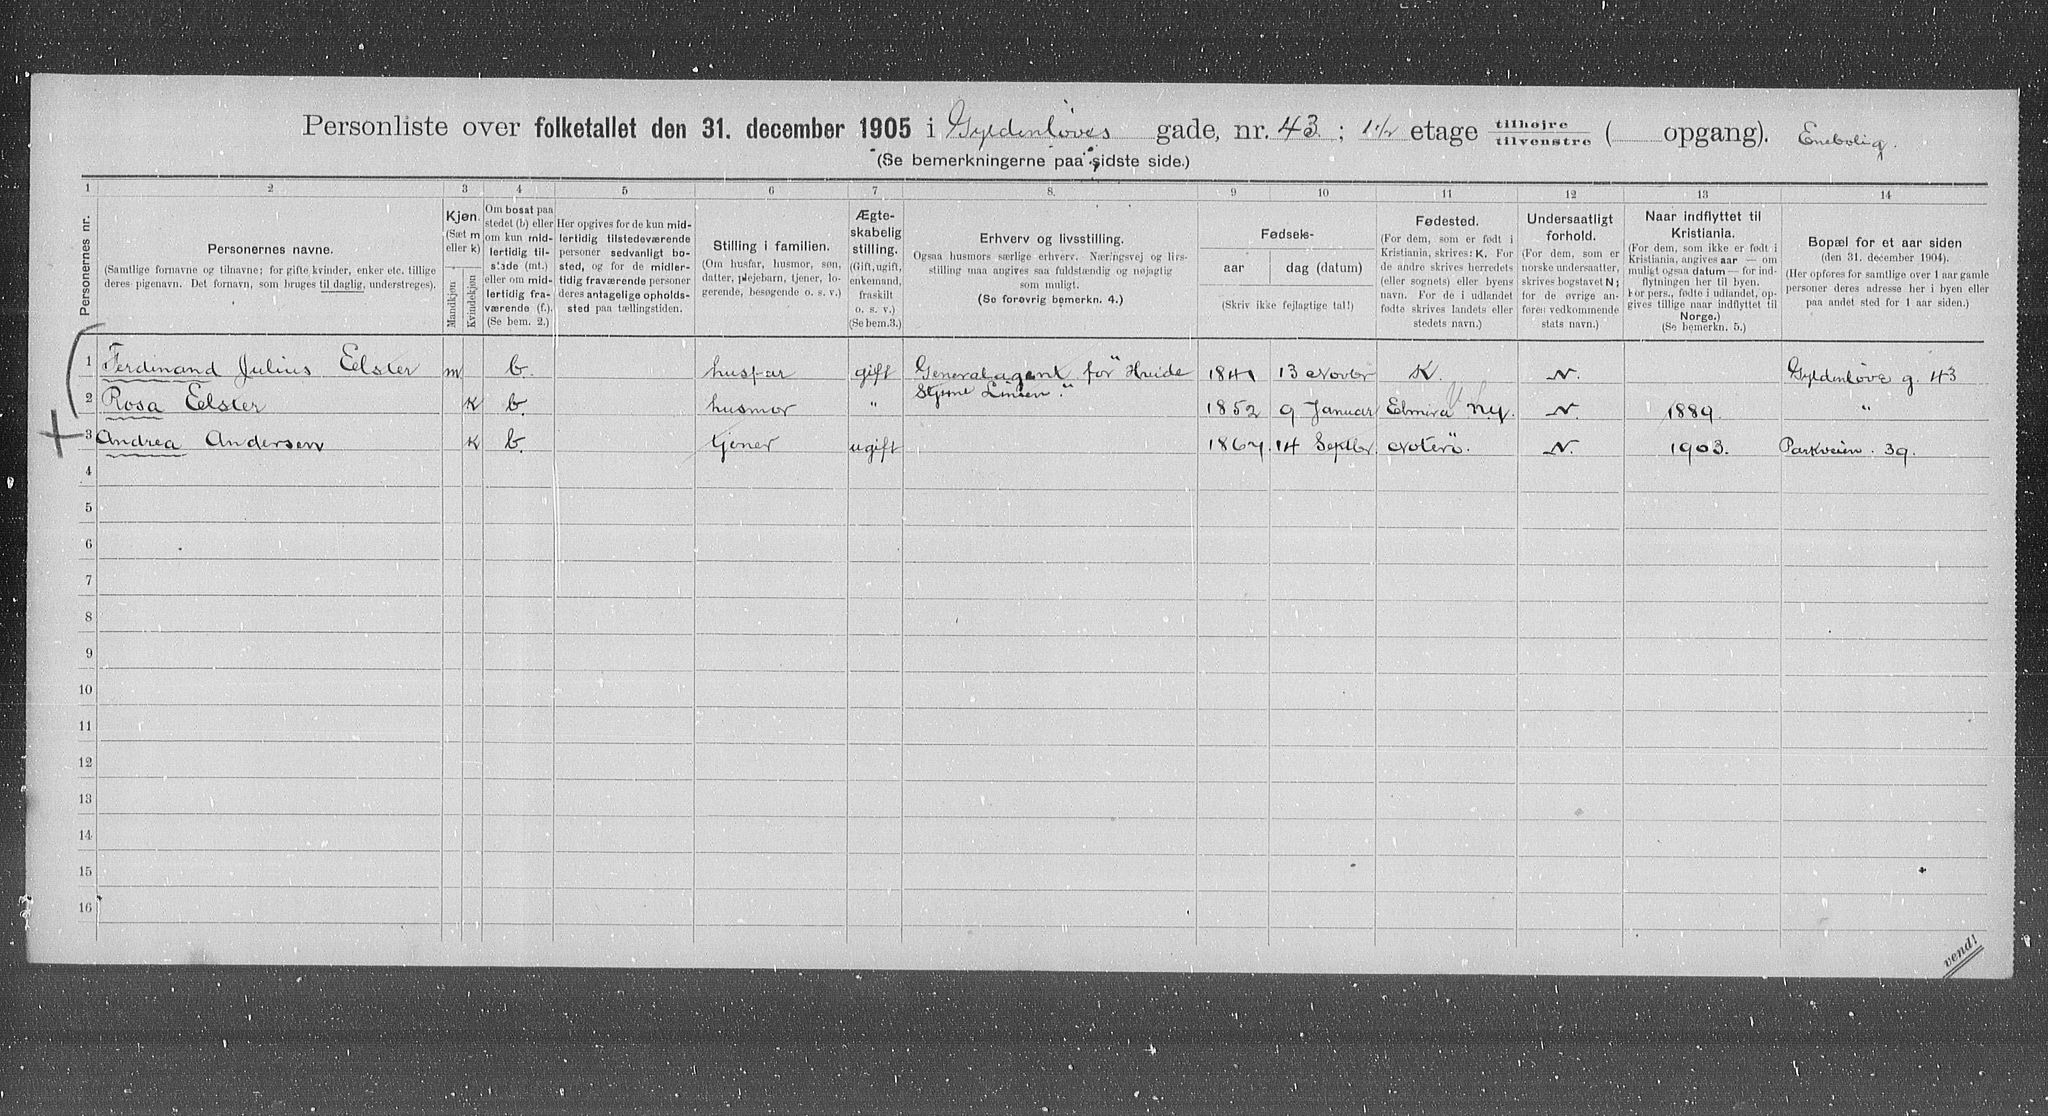 Personliste over folketallet den 31. december 1905 i Gyldenløves gade, nr. 43 ; 1 1/2 etage tilhøjre tilvenstre ( opgang). Enebolig.
(Se bemerkningerne paa sidste side.)
1 2 3 4 5 6 7 8. 9 10 11 12 13 14
Personernes nr.
Personernes navne.
(Samtlige fornavne og tilnavne; for gifte kvinder, enker etc. tillige
deres pigenavn. Det fornavn, som bruges til daglig, understreges).
Kjøn.
(Sæt m
eller k)
Mandkjøn
Kvindekjøn
Om bosat paa
stedet (b) eller
om kun mid-
lertidig til-
stede (mt.)
eller om mid-
lertidig fra-
værende (f.).
(Se bem. 2.)
Her opgives for de kun mid-
lertidig tilstedeværende
personer sedvanligt bo-
sted, og for de midler-
tidig fraværende personer
deres antagelige opholds-
sted paa tællingstiden.
Stilling i familien.
(Om husfar, husmor, søn,
datter, plejebarn, tjener, lo-
gerende, besøgende o. s. v.)
Ægte-
skabelig
stilling.
(Gift, ugift,
enkemand,
fraskilt
o. s. v.)
(Se bem.3.)
Erhverv og livsstilling.
Ogsaa husmors særlige erhverv. Næringsvej og livs-
stilling maa angives saa fuldstændig og nøjagtig
som muligt.
(Se forøvrig bemerkn. 4.)
Fødsels-
aar
dag (datum)
(Skriv ikke fejlagtige tal!)
Fødested.
(For dem, som er født i
Kristiania, skrives: K. For
de andre skrives herredets
(eller sognets) eller byens
navn. For de i udlandet
fødte skrives landets eller
stedets navn.)
Undersaatligt
forhold.
(For dem, som er
norske undersaatter,
skrives bogstavet N;
for de øvrige an-
føres vedkommende
stats navn.)
Naar indflyttet til
Kristiania.
(For dem, som ikke er født i
Kristiania, angives aar — om
muligt ogsaa datum — for ind-
flytningen her til byen.
For pers., fødte i udlandet, op-
gives tillige naar indflyttet til
Norge.)
(Se bemerkn. 5.)
Bopæl for et aar siden
(den 31. december 1904).
(Her opføres for samtlige over 1 aar gamle
personer deres adresse her i byen eller
paa andet sted for 1 aar siden.)
1 Ferdinand Julius Eelster m b. husfar gift Generalagent for "Hvide 1841 13 Novbr K. N. Gyldenløve g. 43
Stjerne Linien".
2 Rosa Eelster K b. husmor " 1852 9 Januar Elmira N.Y. N. 1889. "
3 Andrea Andersen K b. tjener ugift 1867. 14 Septbr. Noterö. N. 1903. Parkveien. 39.
4
5
6
7
8
9
10
11
12
13
14
15
16
vend!